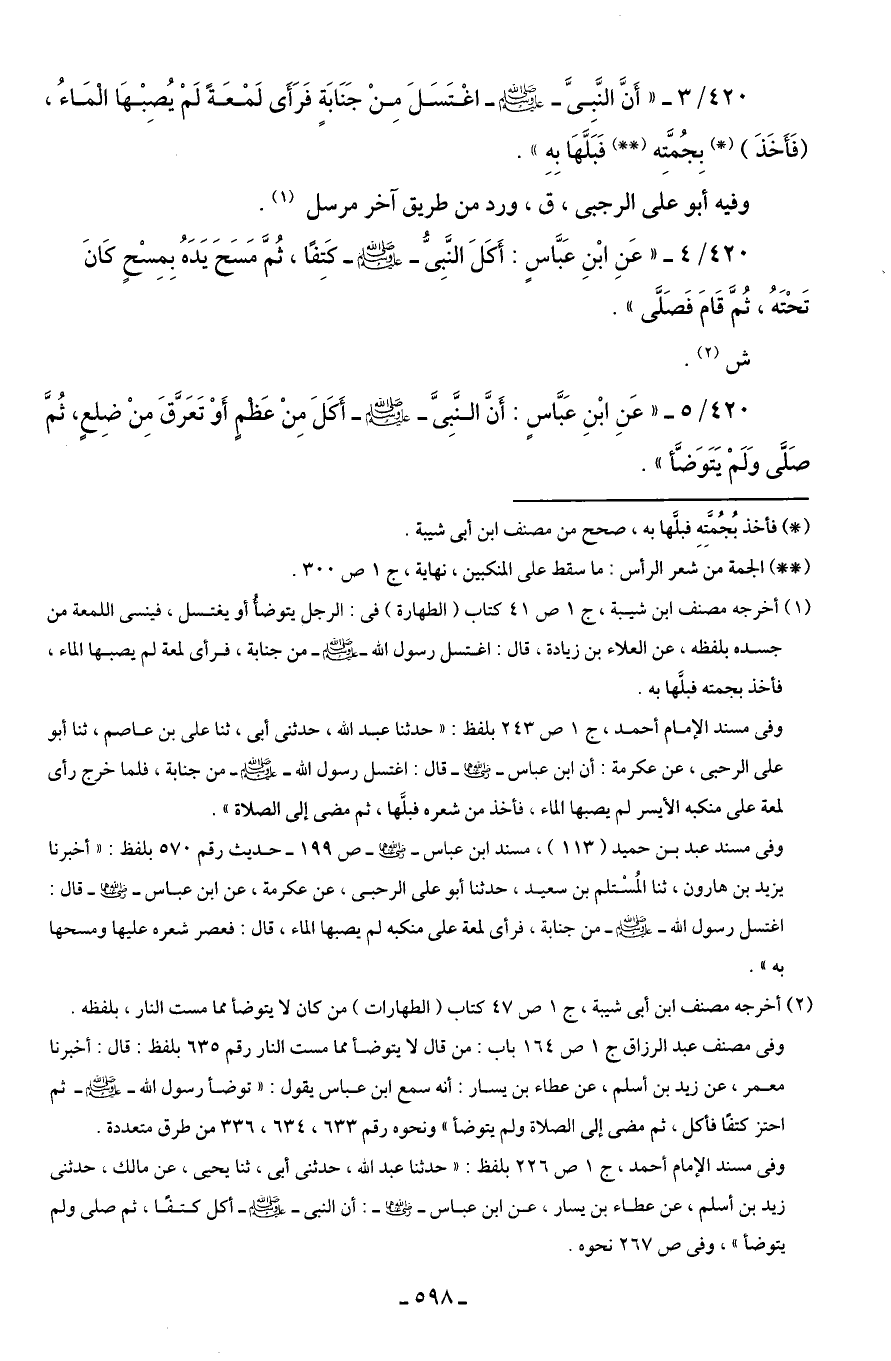 ٣/٤٢٠ ـ « أَنَّ النَّبِىَّ ـ ﷺ ـ اغْتَسَلَ مِنْ جَنَابَةٍ فَرَأَى لَمْعَةً لَمْ يُصِبْهَا الْمَاءُ ،
(فَأَخَذَ ) (*) بِجُمَّتِه (**) فَبَلَّهَا بِهِ » .
وفيه أبو على الرجبى ، ق ، ورد من طريق آخر مرسل (١) .
٤/٤٢٠ ـ « عَنِ ابْنِ عَبَّاسٍ : أَكَلَ النَّبِىُّ ـ ﷺ ـ كَتِفًا ، ثُمَّ مَسَحَ يَدَهُ بِمِسْحٍ كَانَ
تَحْتَهُ ، ثُمَّ قَامَ فَصَلَّى » .
ش (٢) .
٥/٤٢٠ ـ « عَنِ ابْنِ عَبَّاسٍ : أَنَّ النَّبِىَّ ـ ﷺ ـ أَكَلَ مِنْ عَظْمٍ أَوْ تَعَرَّقَ مِنْ ضِلعٍ، ثُمَّ
صَلَّى وَلَمْ يَتَوَضَّأ » .
(*) فأخذ بُجُمَّتِه فبلَّها به ، صحح من مصنف ابن أبى شيبة .
(**) الجمة من شعر الرأس : ما سقط على المنكبين ، نهاية ، ج ١ ص ٣٠٠ .
(١) أخرجه مصنف ابن شيبة ، ج ١ ص ٤١ كتاب ( الطهارة ) فى : الرجل يتوضأُ أو يغتسل ، فينسى اللمعة من
جسده بلفظه ، عن العلاء بن زيادة ، قال : اغتسل رسول الله ـ ﷺ ـ من جنابة ، فرأى لمعة لم يصبها الماء ،
فأخذ بجمته فبلَّها به .
وفى مسند الإمام أحمد ، ج ١ ص ٢٤٣ بلفظ : « حدثنا عبد الله ، حدثنى أبى ، ثنا على بن عاصم ، ثنا أبو
على الرحبى ، عن عكرمة : أن ابن عباس ـ رضي الله عنهما ـ قال : اغتسل رسول الله ـ ﷺ ـ من جنابة ، فلما خرج رأى
لمعة على منكبه الأيسر لم يصبها الماء ، فأخذ من شعره فبلَّها ، ثم مضى إلى الصلاة » .
وفى مسند عبد بن حميد ( ١١٣ ) ، مسند ابن عباس ـ رضي الله عنهما ـ ص ١٩٩ ـ حديث رقم ٥٧٠ بلفظ : « أخبرنا
يزيد بن هارون ، ثنا الْمُسْتلم بن سعيد ، حدثنا أبو على الرحبى ، عن عكرمة ، عن ابن عباس ـ رضي الله عنهما ـ قال :
اغتسل رسول الله ـ ﷺ ـ من جنابة ، فرأى لمعة على منكبه لم يصبها الماء ، قال : فعصر شعره عليها ومسحها
به » .
(٢) أخرجه مصنف ابن أبى شيبة ، ج ١ ص ٤٧ كتاب ( الطهارات ) من كان لا يتوضأ مما مست النار ، بلفظه .
وفى مصنف عبد الرزاق ج ١ ص ١٦٤ باب : من قال لا يتوضأ مما مست النار رقم ٦٣٥ بلفظ : قال : أخبرنا
معمر ، عن زيد بن أسلم ، عن عطاء بن يسار : أنه سمع ابن عباس يقول : « توضأ رسول الله ـ ﷺ ـ ثم
احتز كتفًا فأكل ، ثم مضى إلى الصلاة ولم يتوضأ » ونحوه رقم ٦٣٣ ، ٦٣٤ ، ٣٣٦ من طرق متعددة .
وفى مسند الإمام أحمد ، ج ١ ص ٢٢٦ بلفظ : « حدثنا عبد الله ، حدثنى أبى ، ثنا يحيى ، عن مالك ، حدثنى
زيد بن أسلم ، عن عطاء بن يسار ، عن ابن عباس ـ رضي الله عنهما ـ : أن النبى ـ ﷺ ـ أكل كتفًا ، ثم صلى ولم
يتوضأ » ، وفى ص ٢٦٧ نحوه .
ـ ٥٩٨ ـ